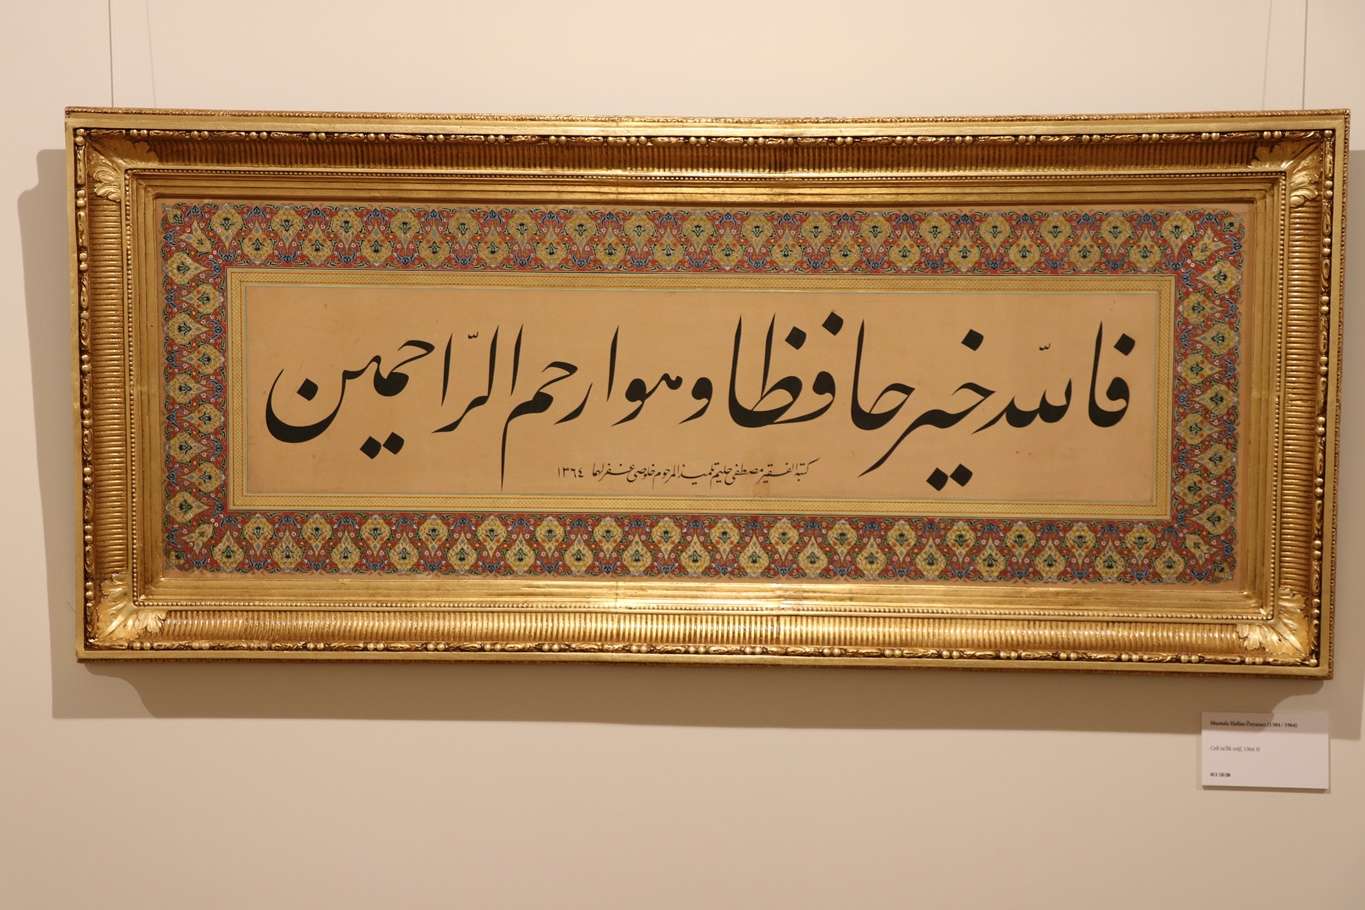 فالله خير حافظا وهو ارحم الرّاحمين
كتبه الفقير مصطفى حليم تلميذ المرحوم خلوصى غفر لهما ١٣٦٤
Mustafa Halim Özyazıcı (1884 / 1964)
Celî ta'lik